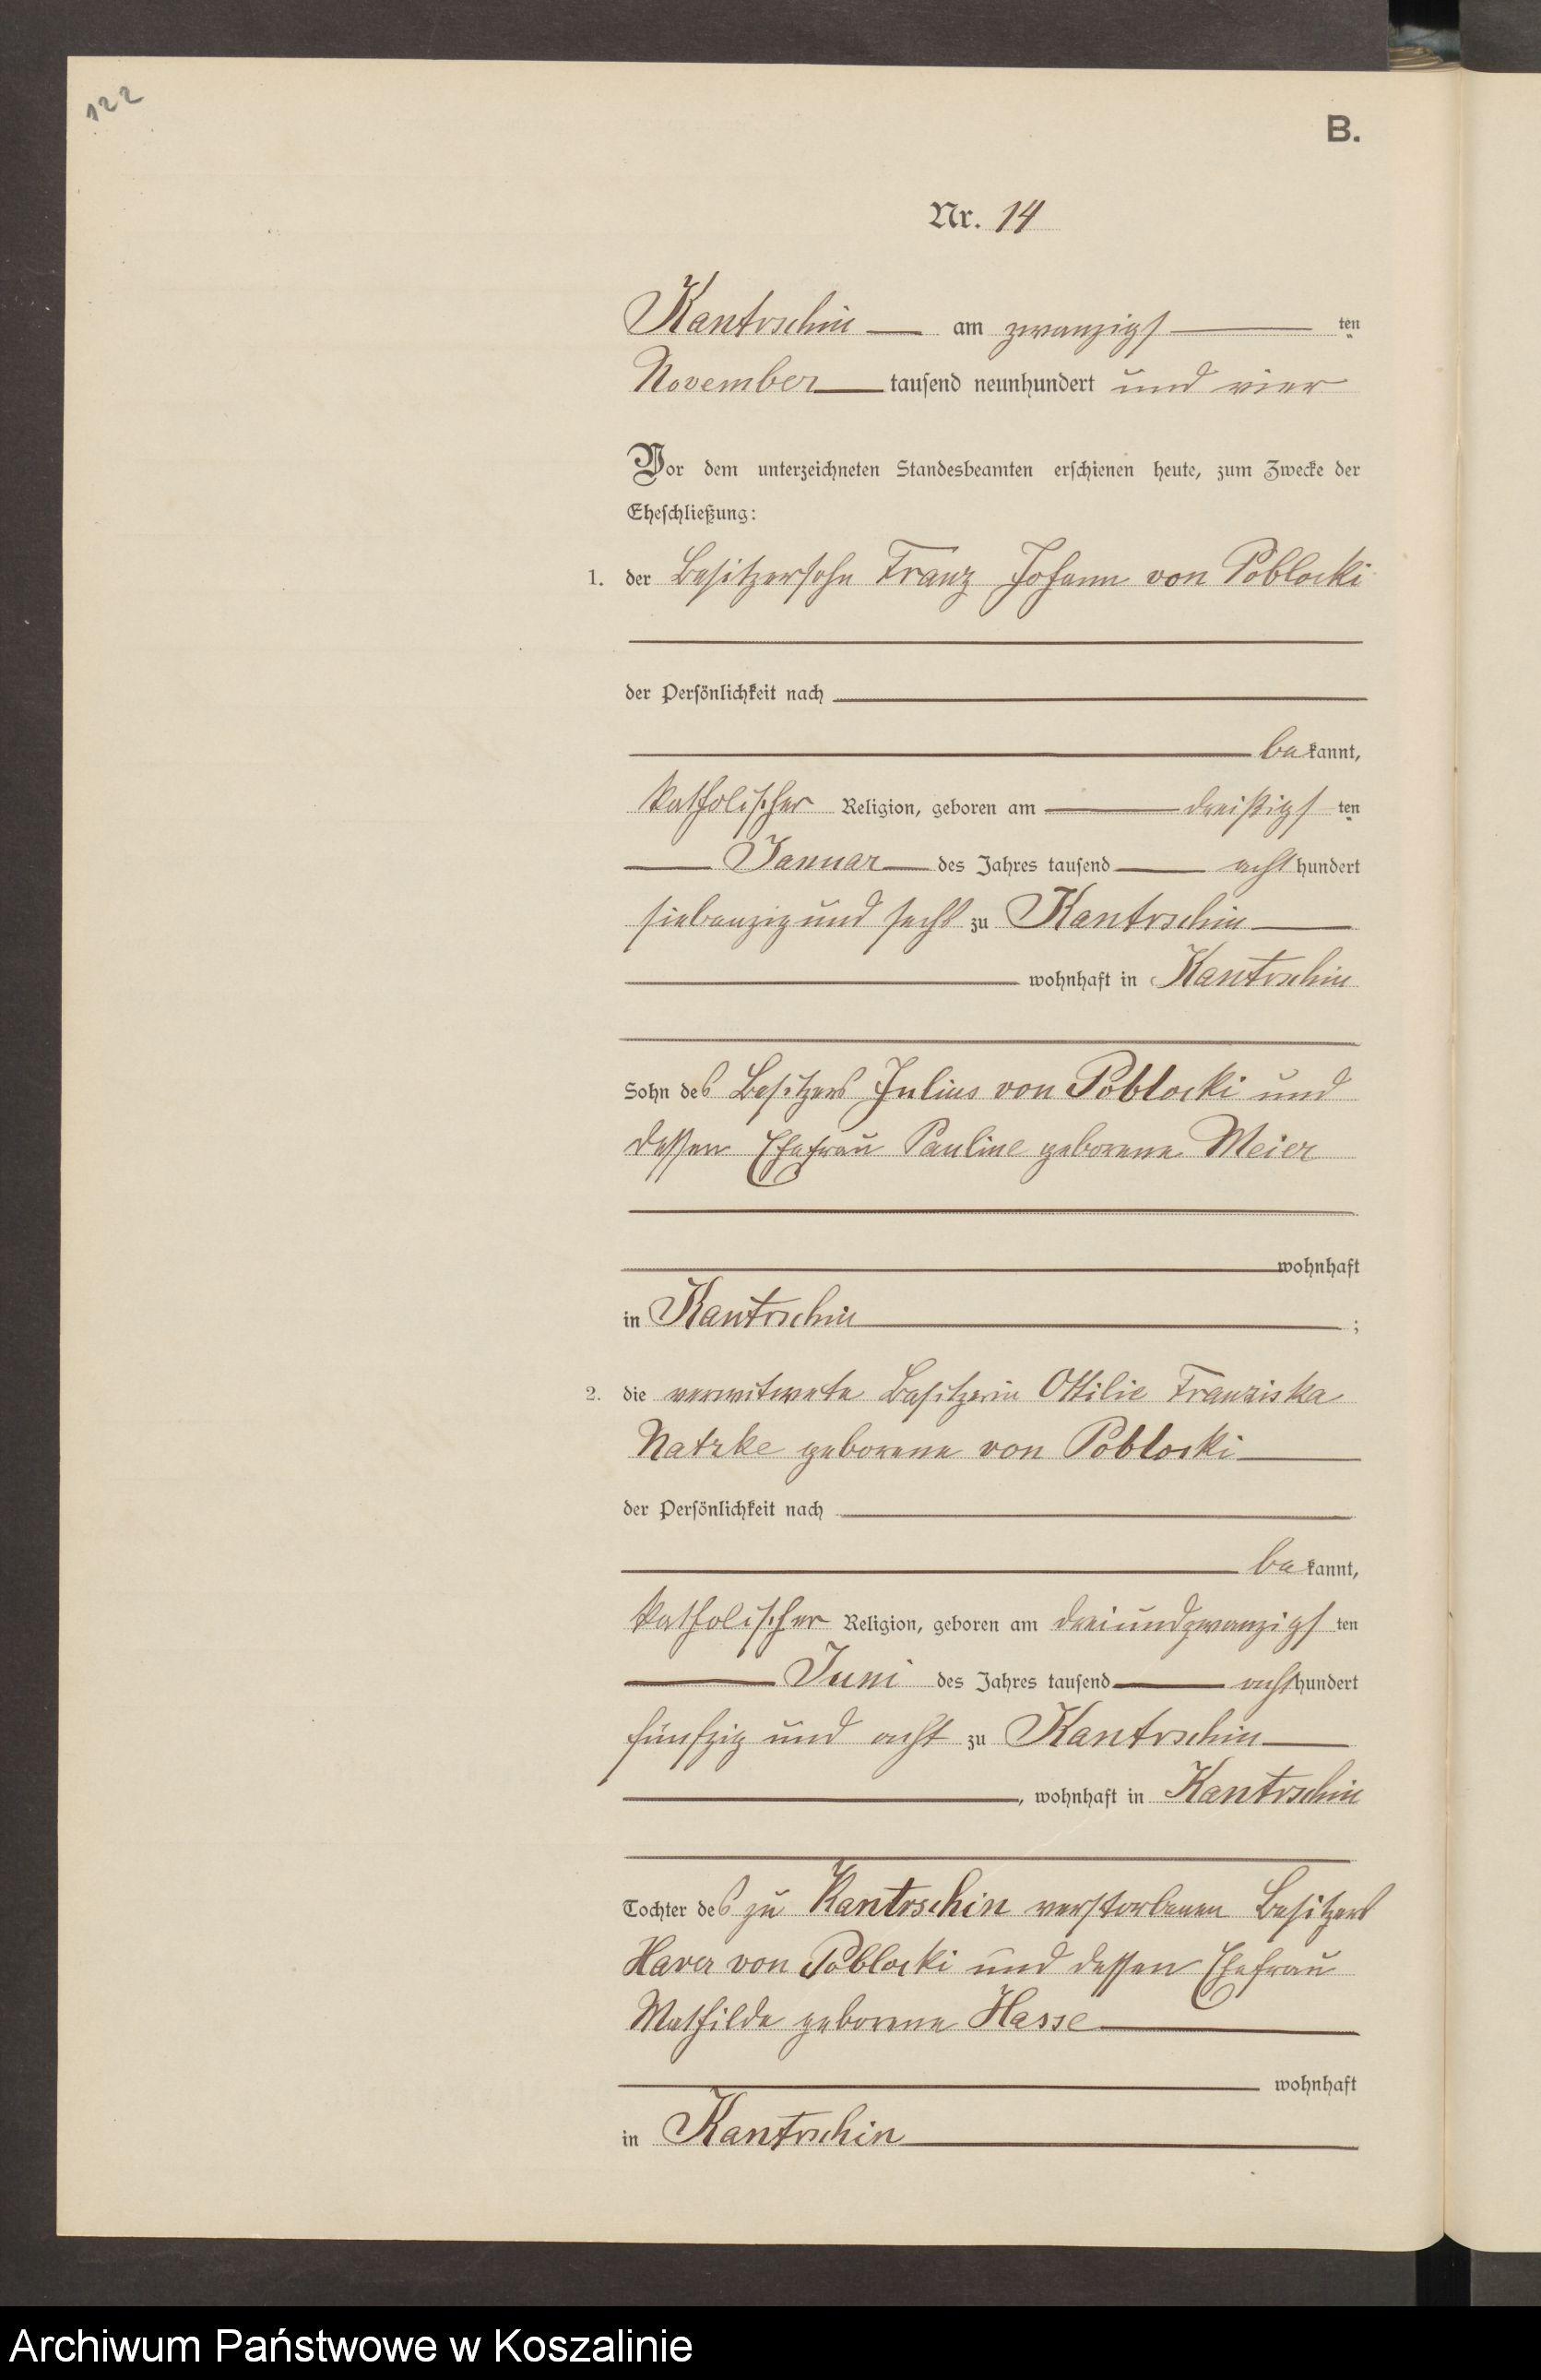 122
B.
Nr. 14
Kantrschin am zwanzigst ten
November tausend neunhundert und vier
Vor dem unterzeichneten Standesbeamten erschienen heute, zum Zwecke der
Eheschließung:
1. der Besitzersohn Franz Johann von Poblocki
der Persönlichkeit nach
be kannt,
katholischer Religion, geboren am dreißigst ten
Januar des Jahres tausend acht hundert
siebenzig und sechs zu Kantrschin
wohnhaft in Kantrschin
Sohn des Besitzers Julius von Poblocki und
dessen Ehefrau Pauline geborene Meier
wohnhaft
in Kantrschin ;
2. die verwitwete Besitzerin Ottilie Franziska
Natzke geborene von Poblocki
der Persönlichkeit nach
be kannt,
katholischer Religion, geboren am dreiundzwanzigst ten
Juni des Jahres tausend acht hundert
fünfzig und acht zu Kantrschin
, wohnhaft in Kantrschin
Tochter des zu Kantrschin verstorbenen Besitzers
Xaver von Poblocki und dessen Ehefrau
Mathilde geborene Hasse
wohnhaft
in Kantrschin
Archiwum Państwowe w Koszalinie